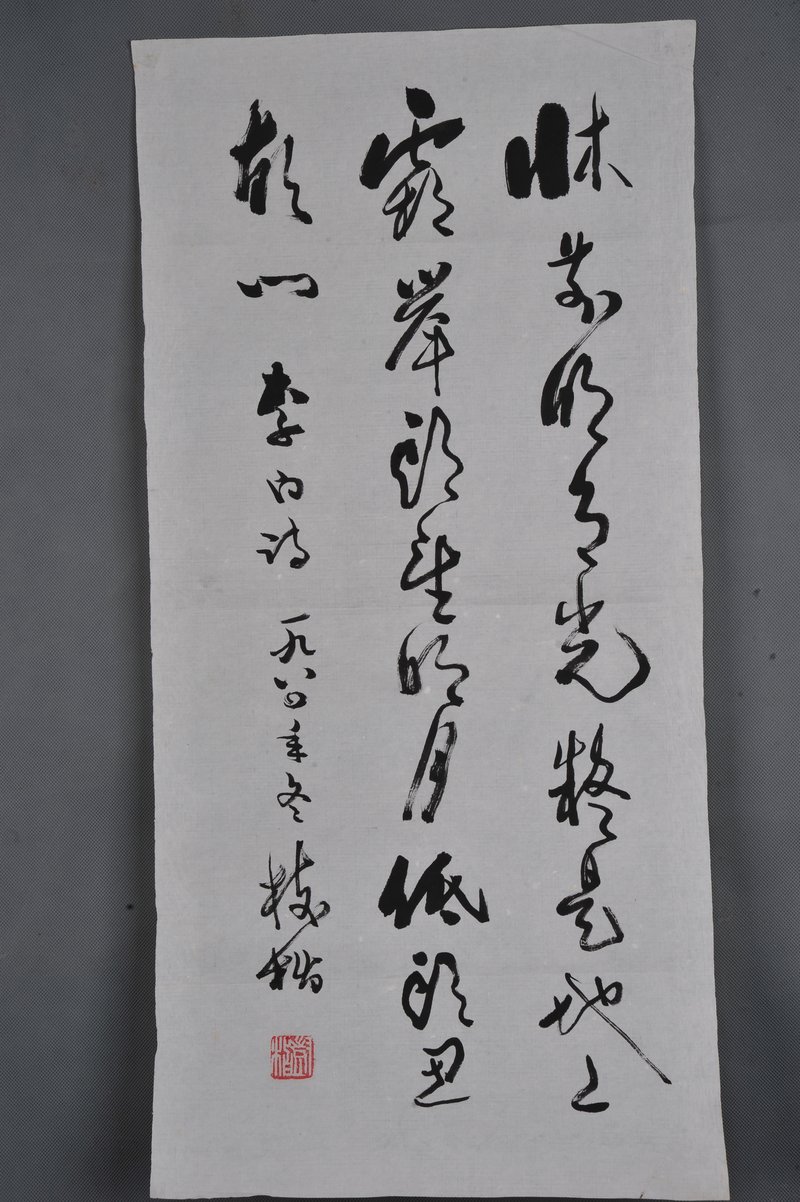 牀前明月光疑是地上
霜举頭望明月低頭思
故乡 李白诗 一九八四年冬